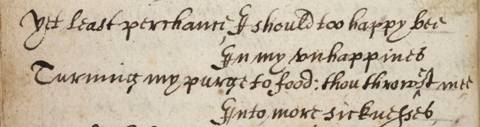 Yet least perchance, I should too happy bee
In my vnhappines
Turning my purge to food; thou throwest mee
Into more sicknesses,